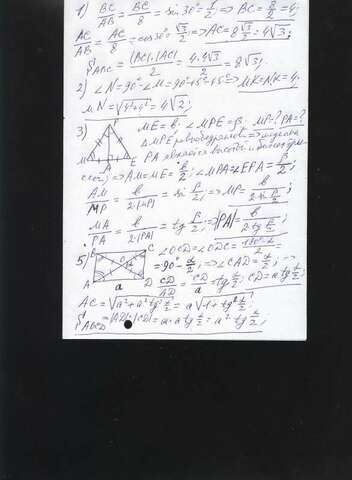 1) BC/AB = BC/8 = sin 30° = 1/2 ⇒ BC = 8/2 = 4;
AC/AB = AC/8 = cos 30° = √3/2 ⇒ AC = 8√3/2 = 4√3;
S ABC = |BC|·|AC|/2 = 4·4√3/2 = 8√3.
2) ∠N = 90° ∠M = 90°-45°=45° ⇒ MK=NK=4.
MN = √4²+4² = 4√2;
3) ME = b; ∠MPE = β. MP-? PA=?
P
△MPE равнобедренный ⇒ медиана
M A E PA является высотой и биссектри-
сой; ⇒ AM=AE= b/2; ∠MPA=∠EPA= β/2
AM/MP = b/2·|MP| = sin β/2; ⇒ MP= b/2 sin β/2;
MA/PA = b/2·|PA| = tg β/2 ⇒ |PA| = b/2 tg β/2;
5) B C ∠OCD=∠ODC= 180°-α/2 =
O α =90°- α/2; ⇒ ∠CAD= α/2;
A a D CD/AD = CD/a = tg α/2; CD = a tg α/2;
AC = √a²+a² tg² α/2 = a √1+tg² α/2;
S ABCD = |AD|·|CD| = a·a tg α/2 = a² tg α/2;